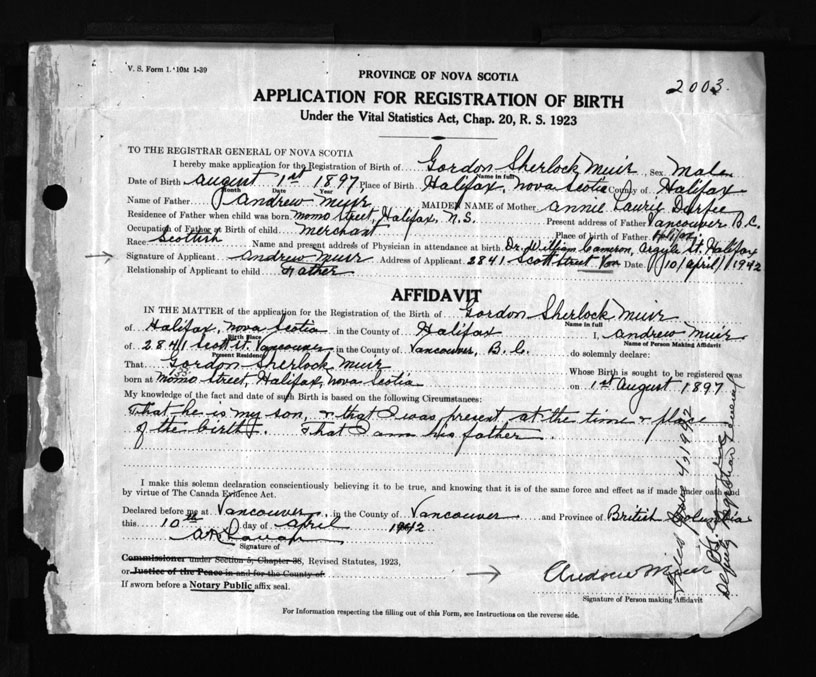 V. S. Form 1. 10M 1-39
2003.
PROVINCE OF NOVA SCOTIA
APPLICATION FOR REGISTRATION OF BIRTH
Under the Vital Statistics Act, Chap. 20, R. S. 1923
TO THE REGISTRAR GENERAL OF NOVA SCOTIA
I hereby make application for the Registration of Birth of Gordon Sherlock Muir, Sex Male
Name in full
Date of Birth August 1st 1897 Place of Birth Halifax, Nova Scotia County of Halifax
Month Date Year
Name of Father Andrew Muir MAIDEN NAME of Mother Annie Laurie
Residence of Father when child was born Street, Halifax, N.S. Present address of Father Vancouver B.C.
Occupation of Father at Birth of child merchant Place of birth of Father
Race Scottish Name and present address of Physician in attendance at birth Dr. William Cameron, Argyle St. Halifax
Signature of Applicant Andrew Muir Address of Applicant 2841 Scott Street Van Date 10/April/1942
Relationship of Applicant to child Father
AFFIDAVIT
IN THE MATTER of the application of the Registration of the Birth of Gordon Sherlock Muir
Name in full
of Halifax, Nova Scotia in the County of Halifax I, Andrew Muir
Birth Place Name of Person Making Affidavit
of 2841 Scott St. Vancouver in the County of Vancouver, B.C. do solemnly declare:
Present Residence
That Gordon Sherlock Muir Whose Birth is sought to be registered was
born at Street, Halifax, Nova Scotia on 1st August 1897
My knowledge of the fact and date of such Birth is based on the following Circumstances:
That he is my son, & that I was present at the time & place
of the birth. That I am his father.
I make this solemn declaration conscientiously believing it to be true, and knowing that it is of the same force and effect as if made under oath and
by virtue of The Canada Evidence Act.
Declared before me at Vancouver in the County of Vancouver and Province of British Columbia
this 10th day of April 1942
Signature of
Commissioner under Section 5, Chapter 38, Revised Statutes, 1923,
or Justice of the Peace in and for the County of
If sworn before a Notary Public affix seal.
Andrew Muir
Signature of Person making Affidavit
Deputy Registrar General
For Information respecting the filling out of this Form, see Instructions on the reverse side.